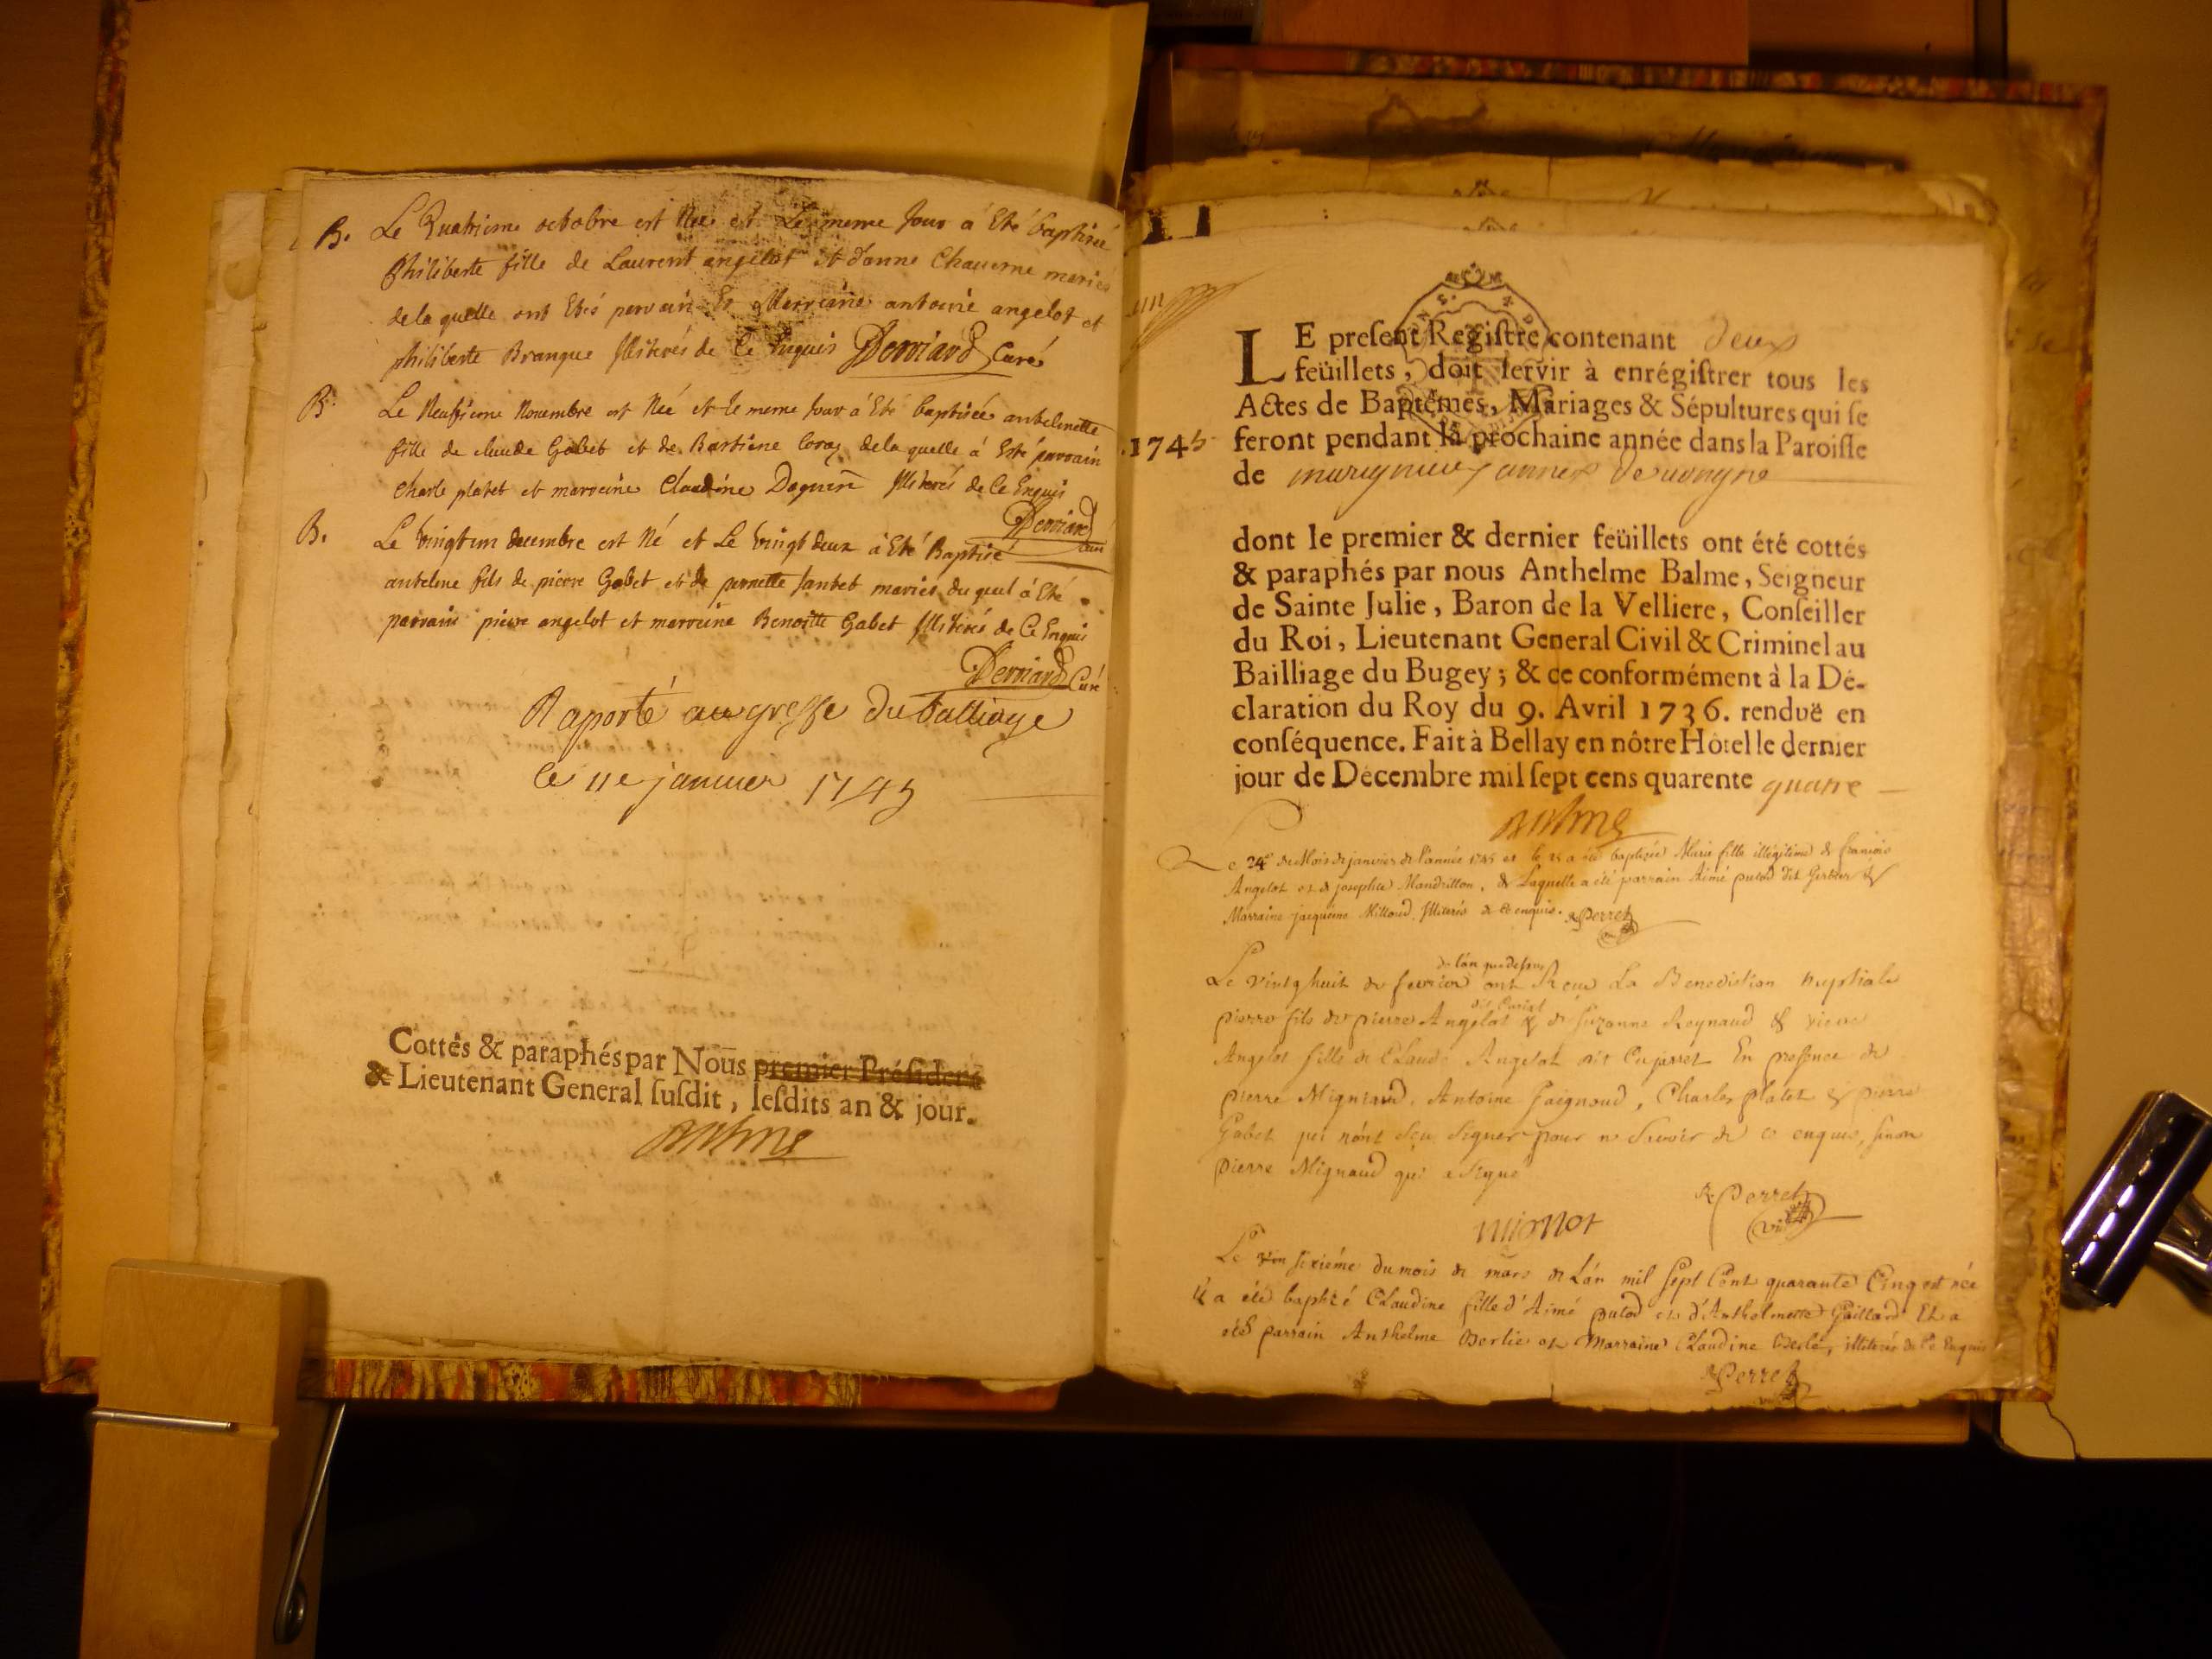 B. Le Quatrieme octobre est Née et Le meme Jour à Eté baptisée
philiberte fille de Laurent angelot et d'anne Chauerne mariés
de la quelle ont Etés parrain Et Marreine antoine angelot et
philiberte Branque Illiterés de Ce Enquis Derriard Curé
B. Le Neufieme Novembre est Née et le meme Jour à Eté baptisée antelmette
fille de claude Gabet et de Bastiene Coraz de la quelle à Eté parrain
Charle platet et marreine Claudine Daguin Illiterés de Ce Enquis
Derriard Curé
B. Le Vingt un decembre est Né et Le Vingt deux à Eté Baptisé
antelme fils de pierre Gabet et de pernette Jantet mariés du quel à Eté
parrain pierre angelot et marreine Benoitte Gabet Illiterés de Ce Enquis
Derriard Curé
Raporté au greffe du balliage
le 11e janvier 1745
Cottés & paraphés par Nous premier Président
& Lieutenant General ſuſdit, leſdits an & jour.
Balme
LE preſent Regiſtre contenant deux
feüillets, doit ſervir à enrégiſtrer tous les
Actes de Baptêmes, Mariages & Sépultures qui ſe
1745 feront pendant la prochaine année dans la Paroiſſe
de marignieu annex de vongne
dont le premier & dernier feüillets ont été cottés
& paraphés par nous Anthelme Balme, Seigneur
de Sainte Julie, Baron de la Velliere, Conſeiller
du Roi, Lieutenant General Civil & Criminel au
Bailliage du Bugey; & ce conformément à la Dé-
claration du Roy du 9. Avril 1736. renduë en
conſéquence. Fait à Bellay en nôtre Hôtel le dernier
jour de Décembre mil ſept cens quarente quatre
Balme
Le 24e du Mois de janvier de l'année 1745 et le 25 a été baptisée Marie fille illégitime de françois
Angelot et de josephte Mandrillon, de Laquelle a été parrain Aimé putod dit Gerbier &
Marraine jacqueme Milloud Illiterés de ce enquis. Perret
de l'an que dessus
Le vingt huit de fevrier ont Reçu La Benediction nuptiale
pierre fils de pierre Angelot & de Suzanne Reynaud &
Angelot fille de Claude Angelot dit Cujarret En presence de
pierre Migniaud, Antoine Jaignoud, Charles platet & pierre
Gabet qui n'ont sçu signer pour ne savoir de ce enquis, sinon
pierre Mignaud qui a Signé
Perret
mignot
Le sixiéme du mois de mars de L'an mil sept Cent quarante Cinq est née
& a été baptisé Claudine fille d'Aimé putod et d'Anthelmette Gaillard Et a
été parrain Anthelme Berlie et Marraine Claudine Berlie, illiterés de Ce Enquis
Perret